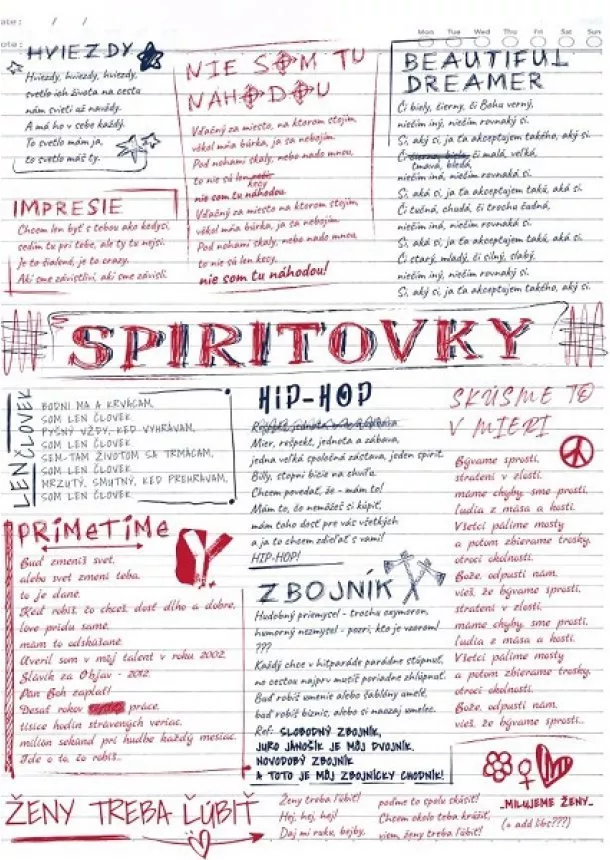 ate: / /
ote:
Mon Tue Wed Thu Fri Sat Sun
HVIEZDY
Hviezdy, hviezdy, hviezdy,
svetlo ich života na cestu
nám svieti už navždy.
A má ho v sebe každý.
To svetlo mám ja,
to svetlo máš ty.
IMPRESIE
Chcem len byť s tebou ako kedysi,
sedím tu pri tebe, ale ty tu nejsi.
Je to šialené, je to crazy.
Akí sme závistliví, akí sme závislí.
NIE SOM TU
NÁHODOU
Vďačný za miesto, na ktorom stojím,
vôkol mňa búrka, ja sa nebojím.
Pod nohami skaly, nebo nado mnou,
to nie sú len
kecy
nie som tu náhodou.
Vďačný za miesto, na ktorom stojím,
vôkol mňa búrka, ja sa nebojím.
Pod nohami skaly, nebo nado mnou,
to nie sú len kecy,
nie som tu náhodou!
BEAUTIFUL
DREAMER
Či biely, čierny, či Bohu verný,
niečím iný, niečím rovnaký si.
Si, aký si, ja ťa akceptujem takého, aký si.
Či čierna, biela, či malá, veľká,
tmavá, bledá,
niečím iná, niečím rovnaká si.
Si, aká si, ja ťa akceptujem takú, aká si.
Či tučná, chudá, či trochu čudná,
niečím iná, niečím rovnaká si.
Si, aká si, ja ťa akceptujem takú, aká si.
Či starý, mladý, či silný, slabý,
niečím iný, niečím rovnaký si.
Si, aký si, ja ťa akceptujem takého, aký si.
SPIRITOVKY
LEN ČLOVEK
BODNI MA A KRVÁCAM,
SOM LEN ČLOVEK
PYŠNÝ VŽDY, KEĎ VYHRÁVAM,
SOM LEN ČLOVEK
SEM-TAM ŽIVOTOM SA TRMÁCAM,
SOM LEN ČLOVEK
MRZUTÝ, SMUTNÝ, KEĎ PREHRÁVAM,
SOM LEN ČLOVEK
PRIMETIME
Buď zmeníš svet,
alebo svet zmení teba,
to je dané.
Keď robíš, to chceš, dosť dlho a dobre,
love prídu samé,
mám to odskúšané.
Uveril som v môj talent v roku 2002,
Slávik za Objav - 2012.
Pán Boh zaplať!
Desať rokov práce,
tisíce hodín strávených veriac,
milión sekúnd pri hudbe každý mesiac.
Ide o to, to robíš...
HIP-HOP
Rešpekt, jednota, mier, zábava
Mier, rešpekt, jednota a zábava,
jedna veľká spoločná zástava, jeden spirit.
Billy, stopni bicie na chvíľu.
Chcem povedať, že - mám to!
Mám to, čo nemôžeš si kúpiť,
mám toho dosť pre vás všetkých
a ja to chcem zdieľať s vami!
HIP-HOP!
ZBOJNÍK
Hudobný priemysel - trochu oxymoron,
humorný nezmysel - pozri, kto je vzorom!
???
Každý chce v hitparáde parádne stúpnuť,
no cestou najprv musíš poriadne zhlúpnuť.
Buď robíš umenie alebo šablóny umelé,
buď robíš biznis, alebo si naozaj umelec.
Ref: SLOBODNÝ ZBOJNÍK,
JURO JÁNOŠÍK JE MÔJ DVOJNÍK.
NOVODOBÝ ZBOJNÍK
A TOTO JE MÔJ ZBOJNÍCKY CHODNÍK!
SKÚSME TO
V MIERI
Bývame sprostí,
stratení v zlosti,
máme chyby, sme prostí,
ľudia z mäsa a kostí.
Všetci pálime mosty
a potom zbierame trosky,
otroci okolností.
Bože, odpusti nám,
vieš, že bývame sprostí,
stratení v zlosti,
máme chyby, sme prostí,
ľudia z mäsa a kostí.
Všetci pálime mosty
a potom zbierame trosky,
otroci okolností.
Bože, odpusti nám,
vieš, že bývame sprostí..
ŽENY TREBA ĽÚBIŤ
Ženy treba ľúbiť!
Hej, hej, hej!
Daj mi ruku, bejby,
poďme to spolu skúsiť!
Chcem okolo teba krúžiť,
viem, ženy treba ľúbiť!
_MILUJEME ŽENY_
(+ add libs???)